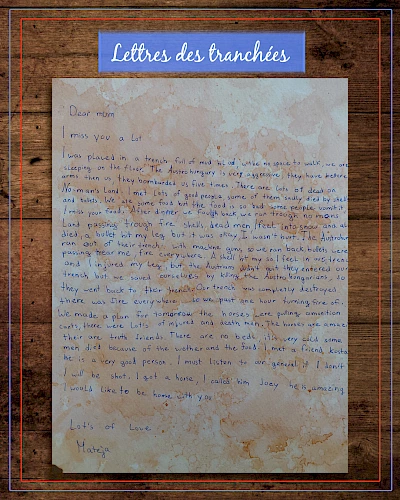 Lettres des tranchées
Dear mom
I miss you a lot
I was placed in a trench full of mud, blood we have no space to walk, we are
sleeping on the floor. The Austro hungary is very aggressive, they have better
arms than us they bombarded us five times. There are lots of dead on
No-man's Land. I met Lots of good people some of them sadly died by shells
and bullets. We are some food but the food is so bad some people vomit.
I miss your food. After dinner we fough back we ran trough no mans
Land passing trough fire shells dead men, feet into snow and
died, a bullet hit my leg but it was okay, I wasn't hurt. The Austrohun
ran out of their trench with machine guns so we ran back, bullets were
passing near me, fire everywhere. A shell hit so I fell in ours trench
and I injured my leg, but the Austrians didn't quit they entered our
trench but we saved ourselves by killing the Austro hungarians, so
they went back to their trench. Our trench was completely destroyed
there was fire everywhere so we past one hour turning fire off.
We made a plan for tomorrow the horses are pulling amonition
carts, there were lott's of injured and death man. The horses are amazing
their are truth friends. There are no beds, it's very cold some
men died because of the wether and the food. I met a friend, Kosta
he is a very good person. I must listen to our general if I don't
I will be shot. I got a horse, I called him Joey he is amazing
I would like to be home with you
Lot's of Love
Mateja